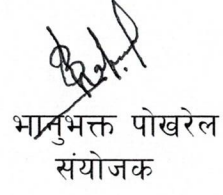 भानुभक्त पोखरेल
संयोजक